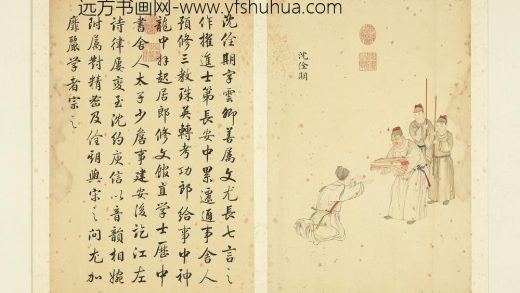 远方书画网.www.yfshuhua.com
沈佺期
沈佺期字雲卿善属文尤長七言之
作擢進士第長安中累遷通事舍人
預修三教珠英轉考功郎給事中神
龍中拜起居郎修文館直學士歷中
書舍人太子少詹事建安後訖江左
詩律屢變至沈約庾信以音韻相婉
附属對精密及佺期與宋之問尤加
靡麗學者宗之